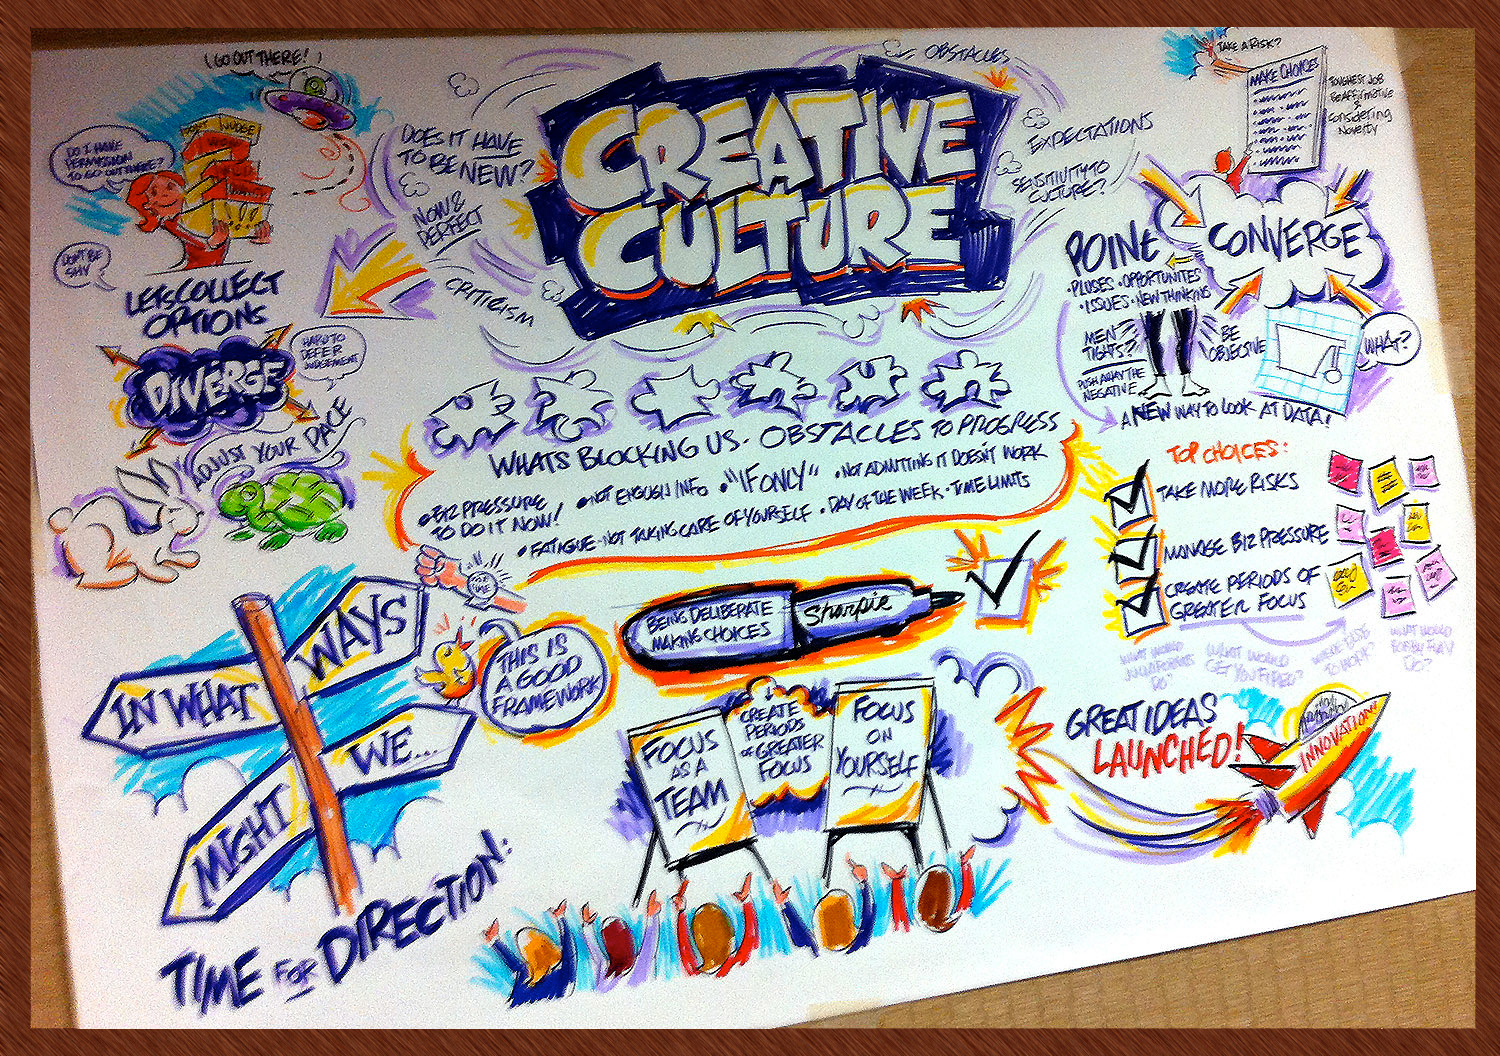 (GO OUT THERE!)
DO I HAVE
PERMISSION
TO GO OUT THERE?
NUDGE
DON'T BE
SHY
LETS COLLECT
OPTIONS
DIVERGE
HARD TO
DEFER
JUDGEMENT
ADJUST YOUR PACE
DOES IT HAVE
TO BE NEW?
NOW &
PERFECT
CRITICISM
CREATIVE
CULTURE
OBSTACLES
EXPECTATIONS
SENSITIVITY TO
CULTURE?
TAKE A RISK?
MAKE CHOICES
TOUGHEST JOB
BE AFFIRMATIVE
&
CONSIDERING
NOVELTY
CONVERGE
POINt
• PLUSES • OPPORTUNITES
• ISSUES • NEW THINKING
MEN
TIGHTS?
PUSH AWAY THE
NEGATIVE
BE
OBJECTIVE
WHAT?
A NEW WAY TO LOOK AT DATA!
WHATS BLOCKING US • OBSTACLES TO PROGRESS
• BIZ PRESSURE
TO DO IT NOW!
• NOT ENOUGH INFO
• "IF ONLY"
• NOT ADMITTING IT DOESN'T WORK
• FATIGUE - NOT TAKING CARE OF YOURSELF • DAY OF THE WEEK • TIME LIMITS
TOP CHOICES:
TAKE MORE RISKS
MANAGE BIZ PRESSURE
CREATE PERIODS OF
GREATER FOCUS
WHAT WOULD
GET YOU FIRED?
WHAT WOULD
DO?
IN WHAT
WAYS
MIGHT
WE...
TIME FOR DIRECTION:
THIS IS
A GOOD
FRAMEWORK
BEING DELIBERATE
MAKING CHOICES
Sharpie
FOCUS
AS A
TEAM
CREATE
PERIODS
OF GREATER
FOCUS
FOCUS
ON
YOURSELF
GREAT IDEAS
LAUNCHED!
INNOVATION